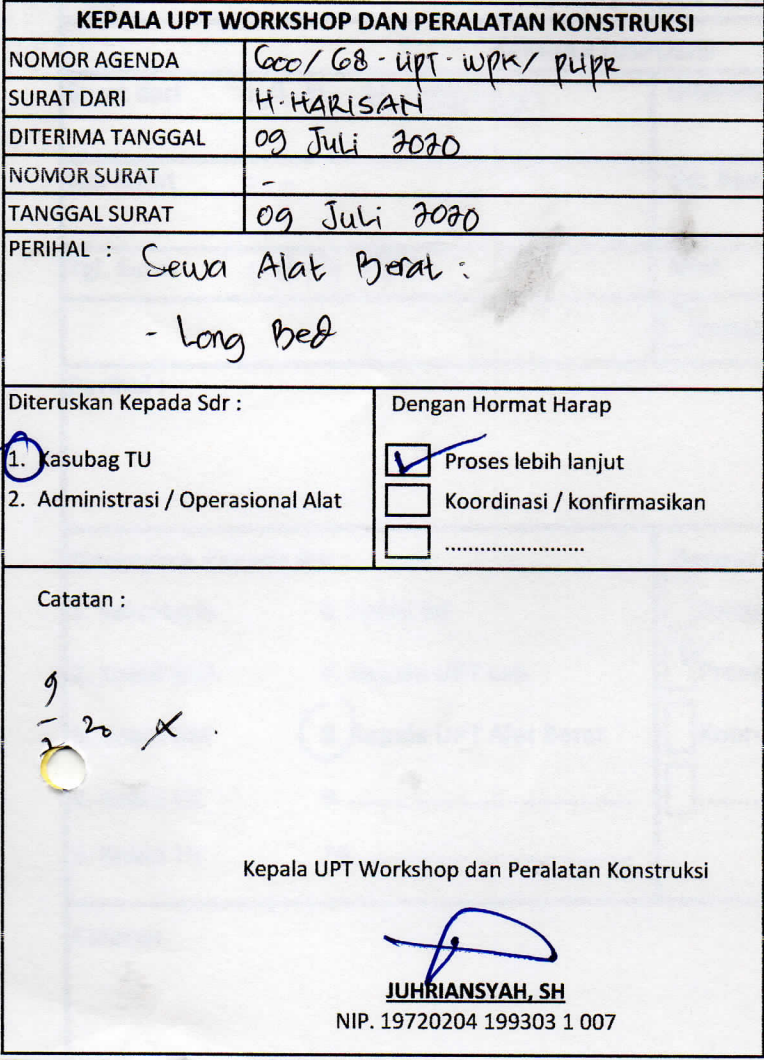 KEPALA UPT WORKSHOP DAN PERALATAN KONSTRUKSI
NOMOR AGENDA 600/68-UPT-WPK/PUPR
SURAT DARI H.HARISAN
DITERIMA TANGGAL 09 Juli 2020
NOMOR SURAT -
TANGGAL SURAT 09 Juli 2020
PERIHAL : Sewa Alat Berat :
- Long Bed
Diteruskan Kepada Sdr :
1. Kasubag TU
2. Administrasi / Operasional Alat
Dengan Hormat Harap
Proses lebih lanjut
Koordinasi / konfirmasikan
........................
Catatan :
9
20
Kepala UPT Workshop dan Peralatan Konstruksi
JUHRIANSYAH, SH
NIP. 19720204 199303 1 007